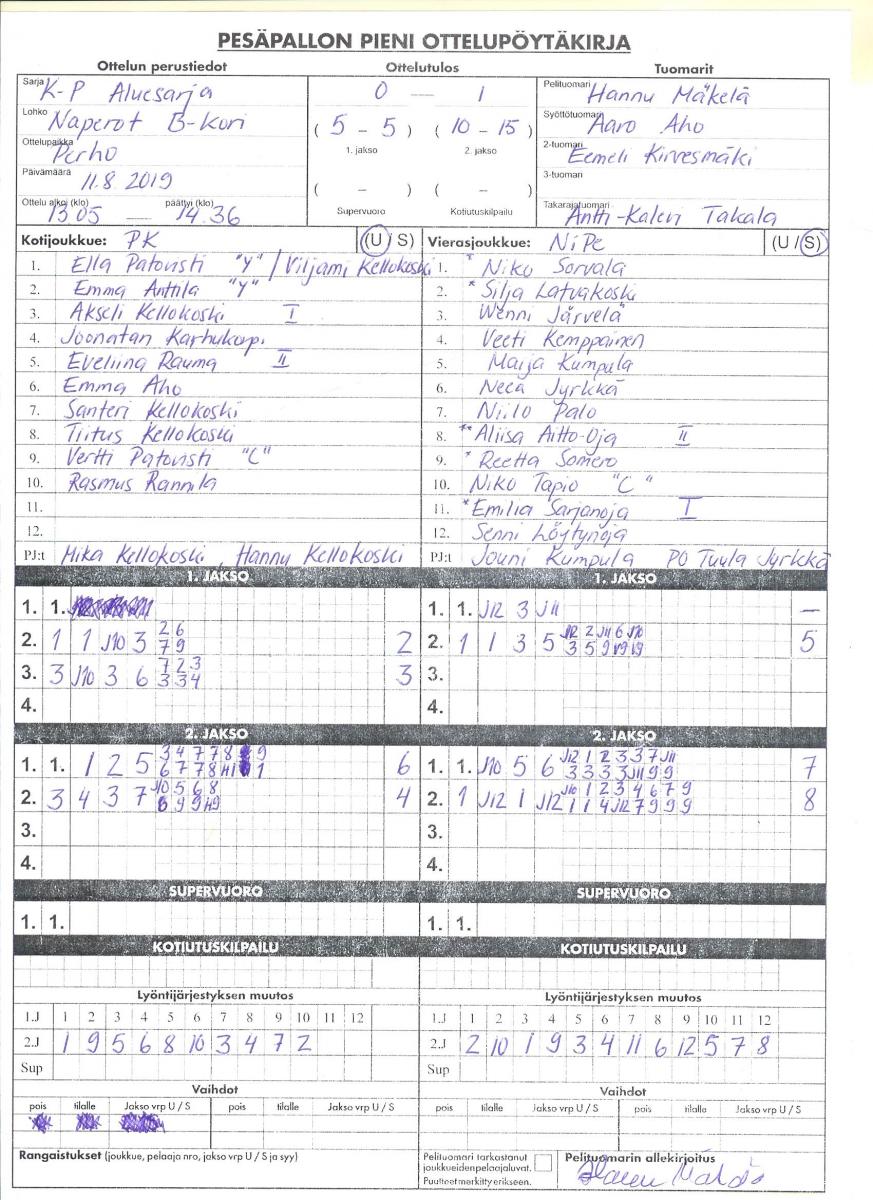 PESÄPALLON PIENI OTTELUPÖYTÄKIRJA
Ottelun perustiedot Ottelutulos Tuomarit
Sarja K-P Aluesarja 0 — 1 Pelituomari Hannu Mäkelä
Lohko Naperot B-Kori (5 - 5) (10 - 15) Syöttötuomari Aaro Aho
Ottelupaikka Perho 1. jakso 2. jakso 2-tuomari Eemeli Kirvesmäki
Päivämäärä 11.8.2019 ( - ) ( - ) 3-tuomari
Ottelu alkoi (klo) 13 05 — päättyi (klo) 14.36 Supervuoro Kotiutuskilpailu Takarajatuomari Antti-Kalen Takala
Kotijoukkue: PK (U / S) Vierasjoukkue: NiPe (U / S)
1. Ella Patovisti "Y" / Viljami Kellokoski 1. * Niko Sorvala
2. Emma Anttila "Y" 2. * Silja Latvakoski
3. Akseli Kellokoski I 3. Wenni Järvelä
4. Joonatan Karhukorpi 4. Veeti Kemppainen
5. Eveliina Rauma II 5. Maija Kumpula
6. Emma Aho 6. Neea Jyrkkä
7. Santeri Kellokoski 7. Niilo Palo
8. Tiitus Kellokoski 8. ** Aliisa Aitto-Oja II
9. Vertti Patovisti "C" 9. * Reetta Somero
10. Rasmus Rannila 10. Niko Tapio "C"
11. 11. * Emilia Sarjanoja I
12. 12. Senni Löytynoja
PJ:t Mika Kellokoski, Hannu Kellokoski PJ:t Jouni Kumpula PO Tuula Jyrkkä
1. JAKSO 1. JAKSO
1. 1. 1. 1. J12 3 J11 —
2 6 J12 2 J11 6 J10
2. 1 1 J10 3 7 9 2 2. 1 1 3 5 3 5 9 5
7 2 3
3. 3 J10 3 6 3 3 4 3 3.
4. 4.
2. JAKSO 2. JAKSO
3 4 7 7 8 9 J12 1 2 3 3 7 J11
1. 1. 1 2 5 6 7 7 8 H1 1 6 1. 1. J10 5 6 3 3 3 3 J11 9 9 7
J10 5 6 8 J10 1 2 3 4 6 7 9
2. 3 4 3 7 9 9 H9 4 2. 1 J12 1 J12 1 1 4 J12 7 9 9 9 8
3. 3.
4. 4.
SUPERVUORO SUPERVUORO
1. 1. 1. 1.
KOTIUTUSKILPAILU KOTIUTUSKILPAILU
Lyöntijärjestyksen muutos Lyöntijärjestyksen muutos
1.J 1 2 3 4 5 6 7 8 9 10 11 12 1.J 1 2 3 4 5 6 7 8 9 10 11 12
2.J 1 9 5 6 8 10 3 4 7 2 2.J 2 10 1 9 3 4 11 6 12 5 7 8
Sup Sup
Vaihdot Vaihdot
pois tilalle Jakso vrp U / S pois tilalle Jakso vrp U / S pois tilalle Jakso vrp U / S pois tilalle Jakso vrp U / S
Rangaistukset (joukkue, pelaaja nro, jakso vrp U / S ja syy) Pelituomari tarkastanut Pelituomarin allekirjoitus
joukkueidenpelaajaluvat.
Puutteet merkitty erikseen.